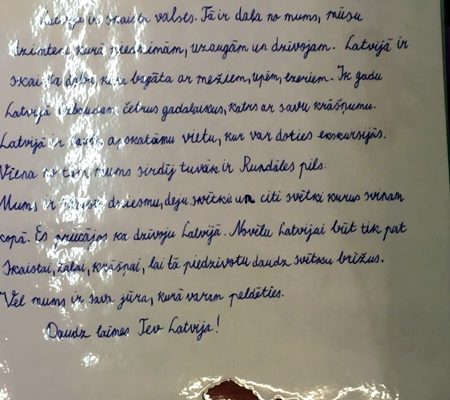 Latvija ir skaista valsts. Tā ir daļa no mums, mūsu
dzimtene kurā piedzimām, uzaugām un dzīvojam. Latvijā ir
skaista daba, kura bagāta ar mežiem, upēm, ezeriem. Ik gadu
Latvijā izbaudam četrus gadalaikus, katrs ar savu krāšņumu.
Latvijā ir daudz apskatāmu vietu, kur var doties ekskursijās.
Viena no tām mums sirdij tuvāk ir Rundāles pils.
Mums ir dziesmu, deju svētki un citi svētki kurus svinam
kopā. Es priecājos ka dzīvoju Latvijā. Novēlu Latvijai būt tik pat
skaistai, zaļai, krāšņai, lai tā piedzīvotu daudz svētku brīžus.
Vēl mums ir sava jūra, kurā varam peldēties.
Daudz laimes Tev Latvija!